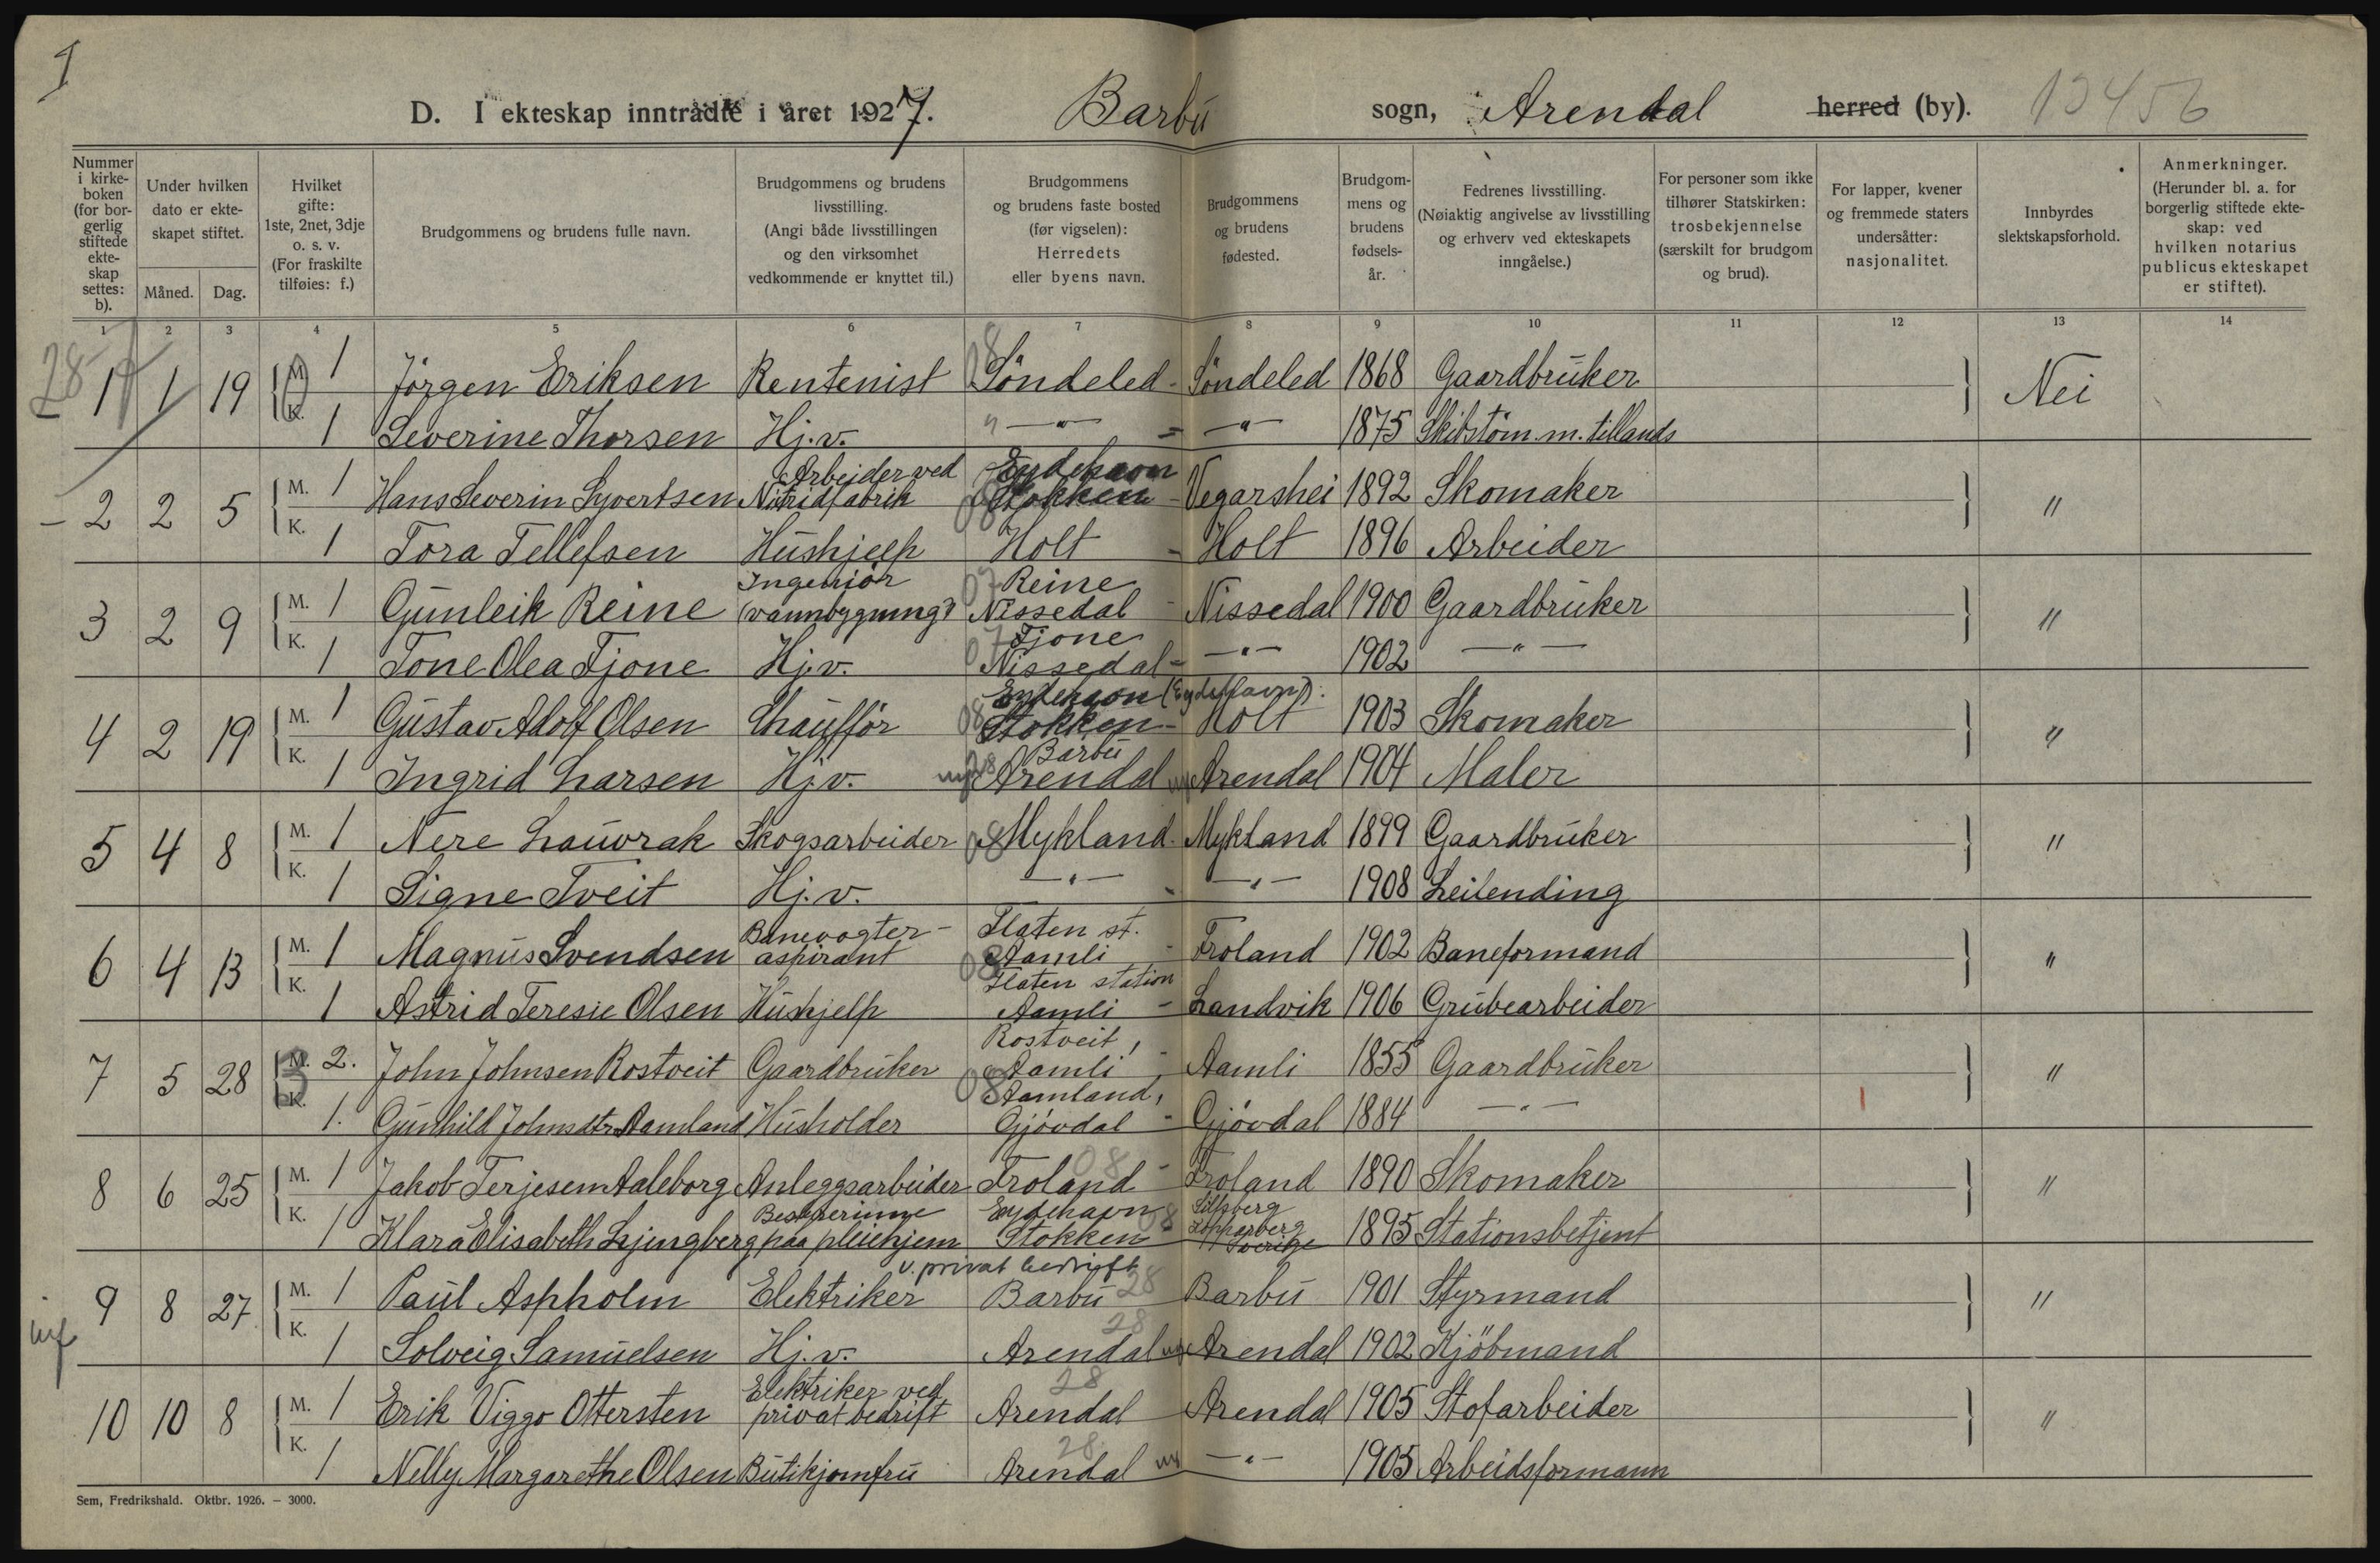 1
D. I ekteskap inntrådte i året 1927. Barbu sogn, Arendal herred (by). 13456
Nummer i kirkeboken (for borgerlig stiftede ekteskap settes: b).
Under hvilken dato er ekteskapet stiftet.
Måned. Dag.
Hvilket gifte: 1ste, 2net, 3dje o. s. v. (For fraskilte tilføies: f.)
Brudgommens og brudens fulle navn.
Brudgommens og brudens livsstilling. (Angi både livsstillingen og den virksomhet vedkommende er knyttet til.)
Brudgommens og brudens faste bosted (før vigselen): Herredets eller byens navn.
Brudgommens og brudens fødested.
Brudgommens og brudens fødselsår.
Fedrenes livsstilling. (Nøiaktig angivelse av livsstilling og erhverv ved ekteskapets inngåelse.)
For personer som ikke tilhører Statskirken: trosbekjennelse (særskilt for brudgom og brud).
For lapper, kvener og fremmede staters undersåtter: nasjonalitet.
Innbyrdes slektskapsforhold.
Anmerkninger. (Herunder bl. a. for borgerlig stiftede ekteskap: ved hvilken notarius publicus ekteskapet er stiftet).
1 2 3 4 5 6 7 8 9 10 11 12 13 14
28 1 1 19 M. 1 Jörgen Eriksen Rentenist 08 Söndeled - Söndeled 1868 Gaardbruker Nei
K. 1 Severine Thorsen Hj.v. " — " — " — 1875 Skibstöm.m. tillands
- 2 2 5 M. 1 Hans Severin Syvertsen Arbeider ved Nitridfabrik Eydehavn 08 Stokken - Vegarshei 1892 Skomaker "
K. 1 Tora Tellefsen Hushjelp Holt - Holt 1896 Arbeider
3 2 9 M. 1 Gunleik Reine Ingeniör (vannbygning) 07 Reine Nissedal - Nissedal 1900 Gaardbruker "
K. 1 Tone Olea Fjone Hj.v. 07 Fjone Nissedal - — " — 1902 — " —
4 2 19 M. 1 Gustav Adolf Olsen Chaufför Eydehavn (Eydehavn). 08 Stokken - Holt 1903 Skomaker "
K. 1 Ingrid Larsen Hj.v. Barbu Arendal Arendal 1904 Maler
5 4 8 M. 1 Nere Lauvrak Skogsarbeider 08 Mykland - Mykland 1899 Gaardbruker "
K. 1 Signe Tveit Hj.v. — " — - — " — 1908 Leilending
6 4 13 M. 1 Magnus Svendsen Banevogter-aspirant Flaten st. 08 Aamli - Froland 1902 Baneformand "
K. 1 Astrid Teresie Olsen Hushjelp Flaten station Aamli - Landvik 1906 Grubearbeider
7 5 28 M. 2. John Johnsen Rostveit Gaardbruker Rostveit, Aamli - Aamli 1855 Gaardbruker "
K. 1. Gunhild Johnsdtr. Aamland Husholder 08 Aamland, Gjövdal - Gjövdal 1884 — " —
8 6 25 M. 1 Jakob Terjesen Aaleborg Anleggsarbeider 08 Froland - Froland 1890 Skomaker "
K. 1 Klara Elisabeth Ljungberg Bestyrerinne paa pleiehjem Eydehavn 08 Stokken - Silfberg Kopparberg Sverige 1895 Stationsbetjent
9 8 27 M. 1 Paul Aspholm Elektriker v. privat bedrift Barbu 28 Barbu 1901 Styrmand "
K. 1 Solveig Samuelsen Hj.v. 28 Arendal Arendal 1902 Kjöbmand
10 10 8 M. 1 Erik Viggo Ottersten Elektriker ved privat bedrift 28 Arendal Arendal 1905 Stofarbeider "
K. 1 Nelly Margarethe Olsen Butikjomfru 28 Arendal — " — 1905 Arbeidsformann
Sem, Fredrikshald. Oktbr. 1926. – 3000.